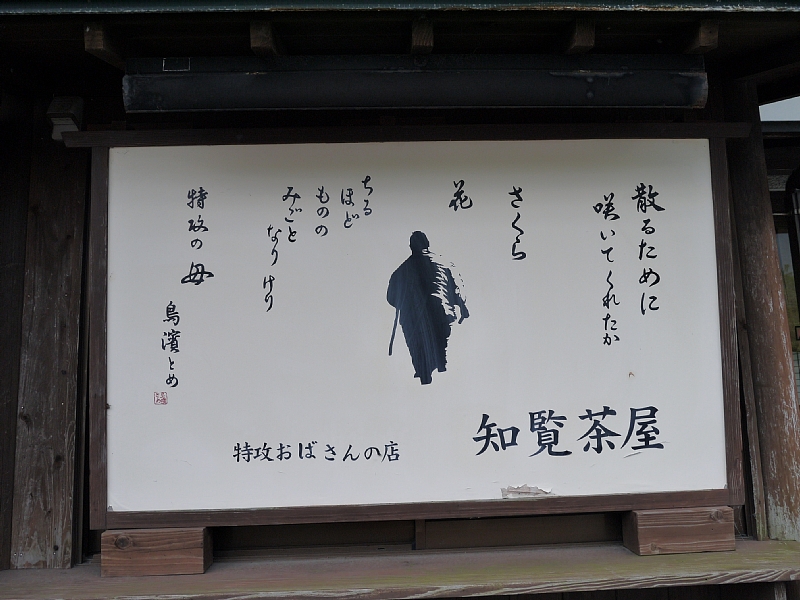 散るために
咲いてくれたか
さくら
花
ちる
ほど
ものの
みごと
なりけり
特攻の母
鳥濱とめ
知覧茶屋
特攻おばさんの店